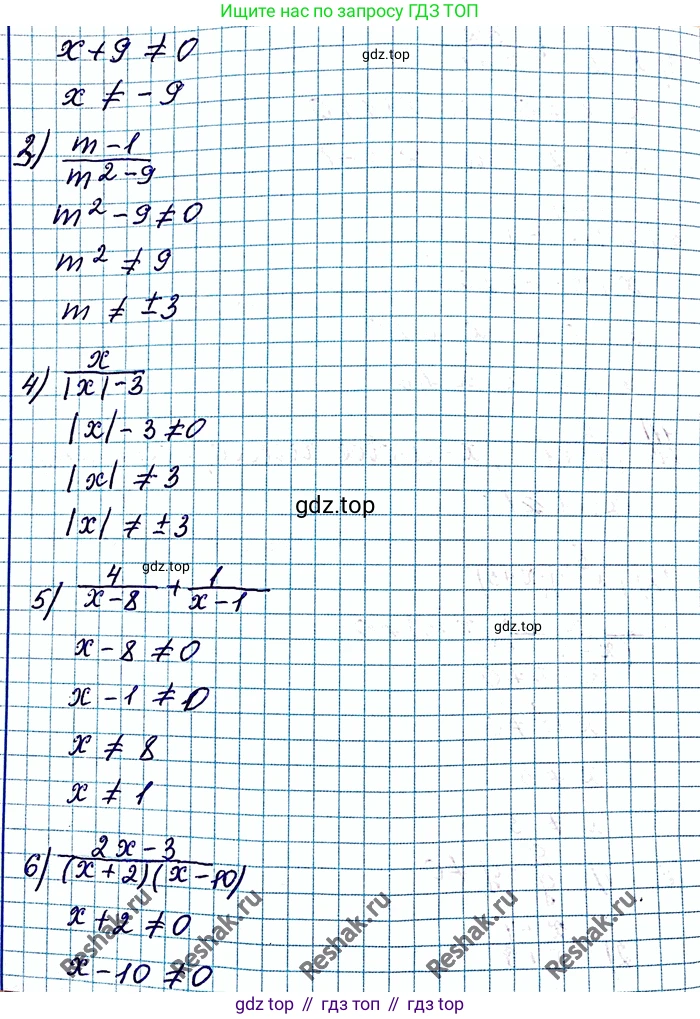 Ищите нас по запросу ГДЗ ТОП
x + 9 ≠ 0
gdz.top
x ≠ -9
3) (m - 1)/(m² - 9)
m² - 9 ≠ 0
m² ≠ 9
m ≠ ±3
4) x/(|x| - 3)
|x| - 3 ≠ 0
|x| ≠ 3
gdz.top
|x| ≠ ±3
gdz.top
5) 4/(x - 8) + 1/(x - 1)
gdz.top
x - 8 ≠ 0
x - 1 ≠ 0
x ≠ 8
x ≠ 1
6) (2x - 3)/((x + 2)(x - 10))
x + 2 ≠ 0
Reshak.ru Reshak.ru Reshak.ru Reshak.ru Reshak.ru
x - 10 ≠ 0
gdz top // гдз топ // гдз top